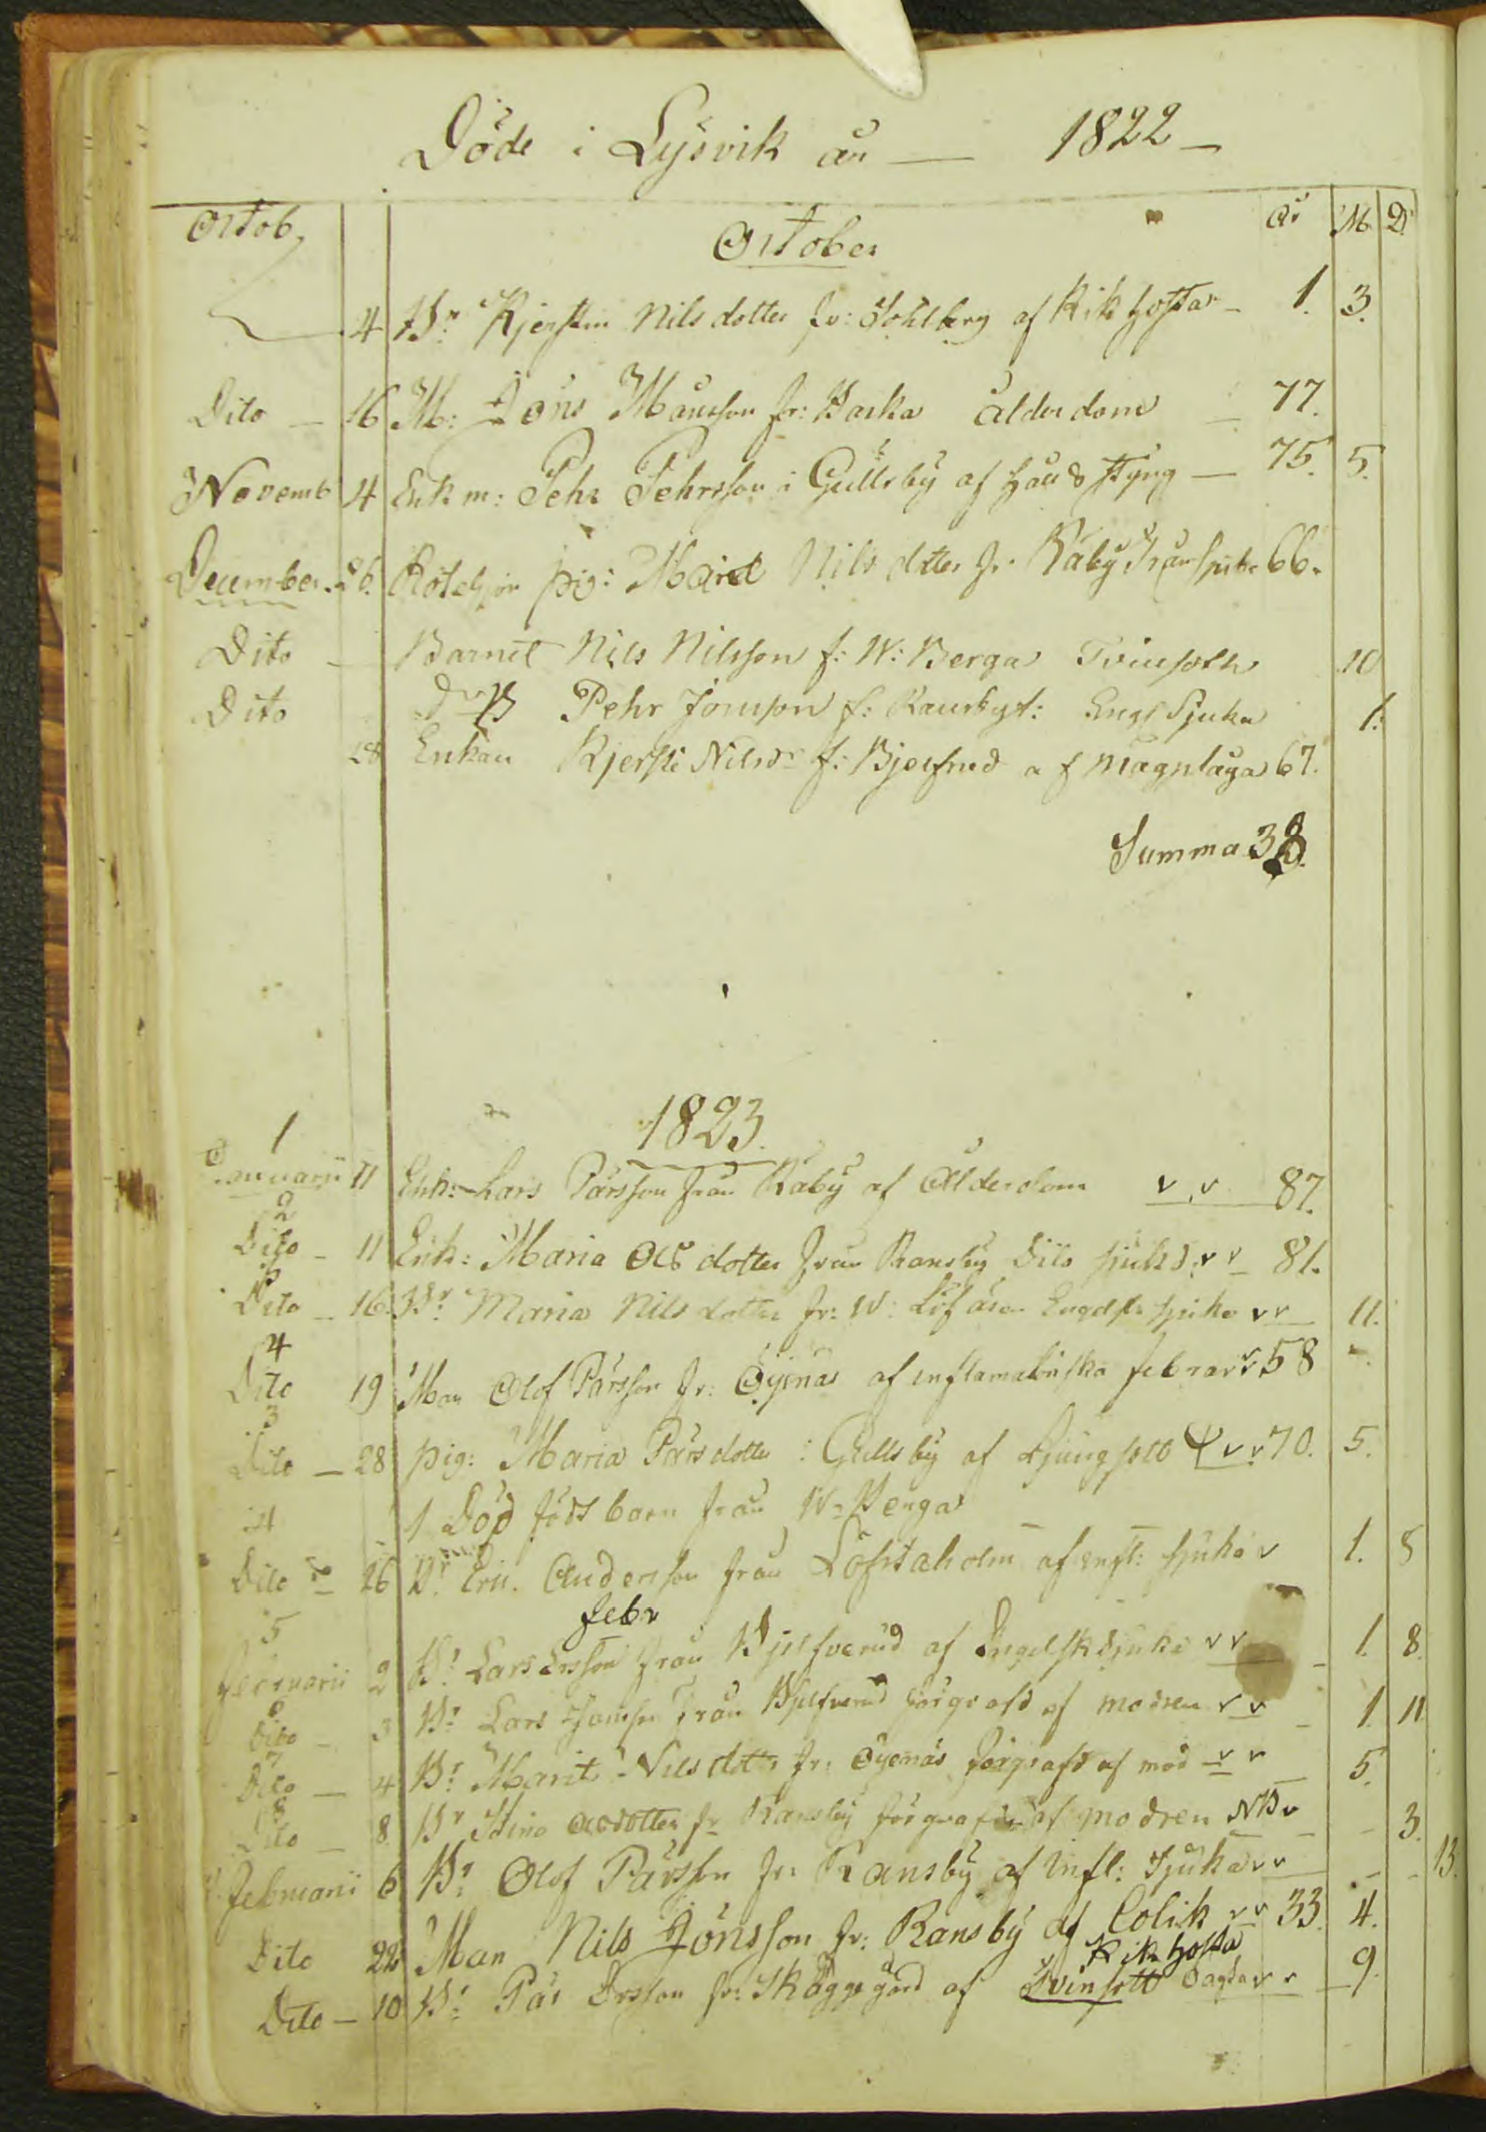 Döde i Lysvik år — 1822 –
Octob October År M. D.
4 Br Kjerstin Nils dotter fr: Sohlberg af Kikhosta – 1. 3.
Dito – 16 M: Jöns Månsson fr: Backa ålderdom – 77.
Novemb 4 Enk m: Pehr Pehrsson i Gullsby af Håll & Styng – 75. 5.
December 26. pig: Marit Nils dotter fr. Råby 66.
Dito – Barnet Nils Nilsson f: W: Berga Tvinsoth 10
Dito Pehr Jonsson f: Ransbyt: Engl Sjuka 1.
28 Enkan Kjersti Nilsdr f: Bjelfrud af Magplåga 67.
Summa 38.
1823.
1
Januarii 11 Enk: Lars Pärsson från Råby af Ålderdom v v 87.
2
Dito – 11 Enk: Maria Ols dotter från Ransby Dito sjukd: v v 81.
Dito – 16 Br Maria Nils dotter fr: W: Löfåsen Engelsk sjuka v v 11.
4
Dito 19 Man Olof Pärsson fr: Öyenäs af inflamatoriska febrar v 58
3
Dito – 28 pig: Maria Pärsdotter i Gullsby af Ljungsott v v 70. 5.
1 Död född barn från W: Berga
Dito – 26 Br Eric Andersson från Löfstaholm af infl: sjuka v 1. 8
Febr
5
Februarii 2 Br Lars Ersson från Bjelfverud af Engelsk Sjuka v v 1. 8.
6
Dito – 3 Br Lars Jonsson från Bjelfverud förqvafd af modren v v – 1 11
7
Dito – 4 Br Marit Nils dotter fr: Öyenäs förqvafd af mod v v 5.
8
Dito – 8 Br Stina Olsdotter fr Ransby förqvafd af modren NB v – 3.
Februarii 6 Br Olof Pärsson fr: Ransby af Infl: Sjuka v v – 13.
Dito 22 Man Nils Jönsson fr: Ransby af Colik v v 33. 4.
Kikhosta
Dito – 10 Br Pär Ersson fr: Skäggegård af Tvinsott v v – 9.